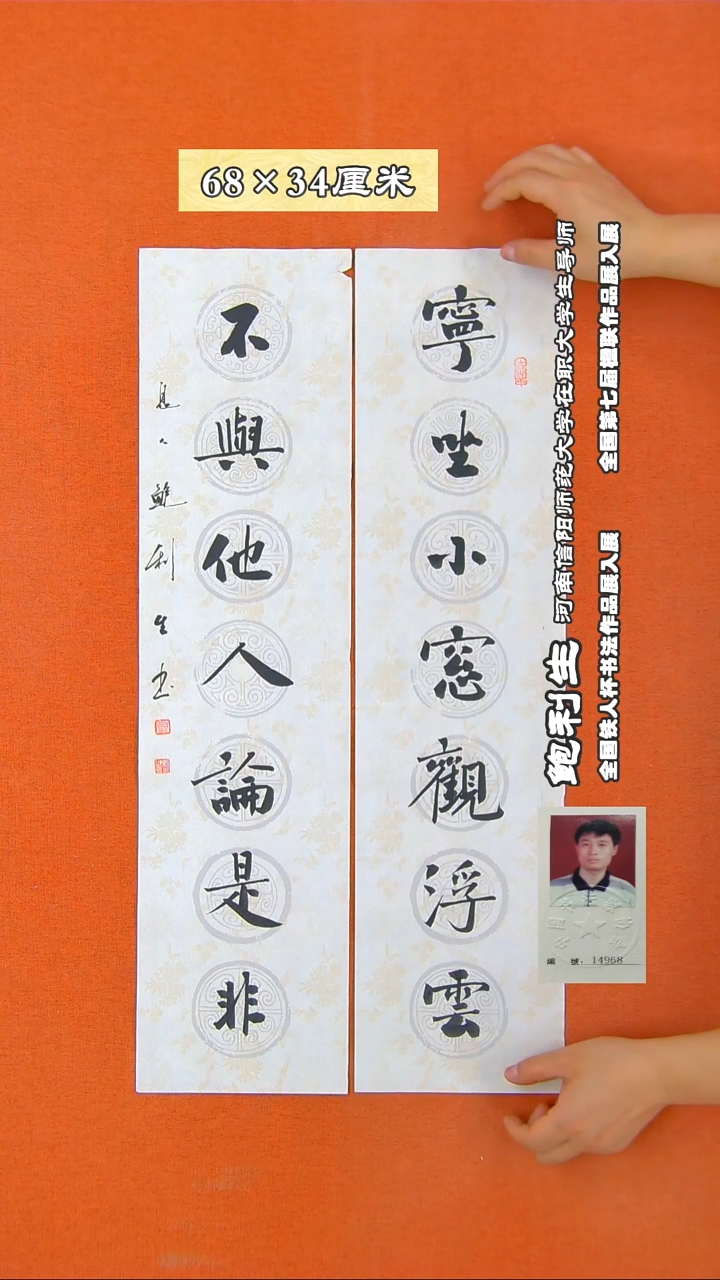 68×34厘米
寧坐小窓觀浮雲
不與他人論是非
鮑利生书
鲍利生
河南信阳师范大学在职大学生导师
全国铁人杯书法作品展入展
全国第七届楹联作品展入展
編 號: 14968